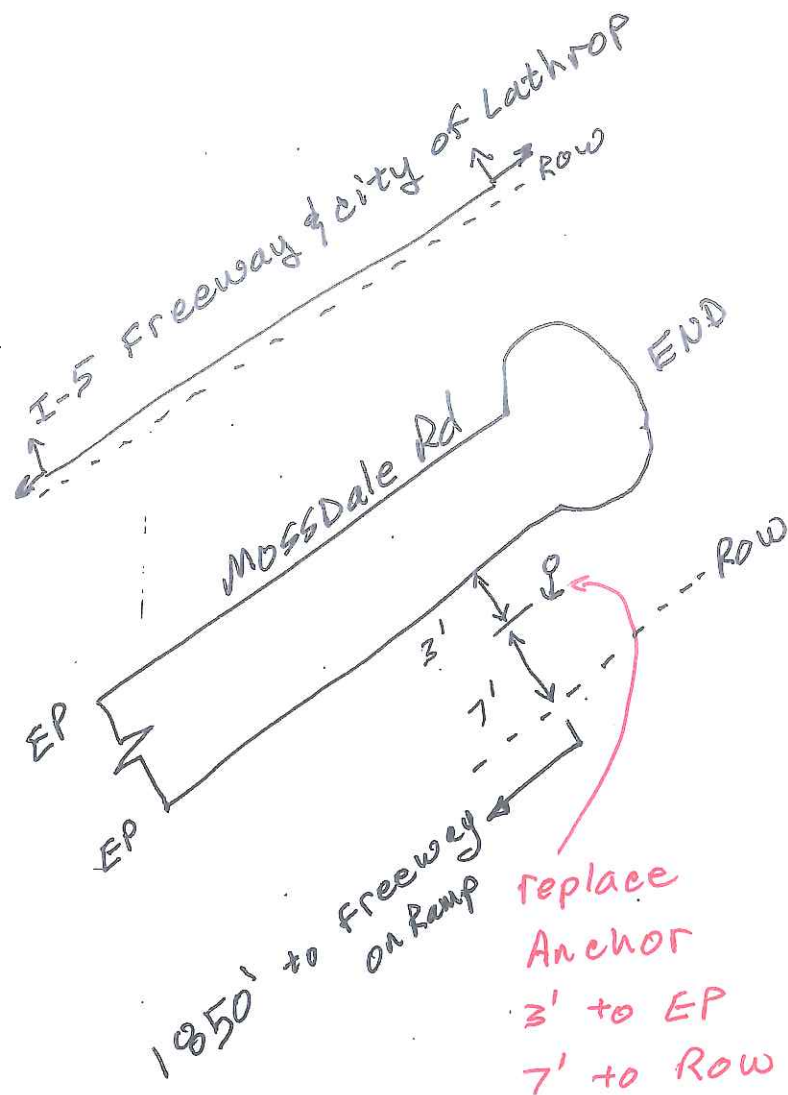 I-5 Freeway & city of Lathrop
ROW
END
MossDale Rd
ROW
3'
7'
EP
EP
1850' to Freeway
on Ramp
replace
Anchor
3' to EP
7' to Row